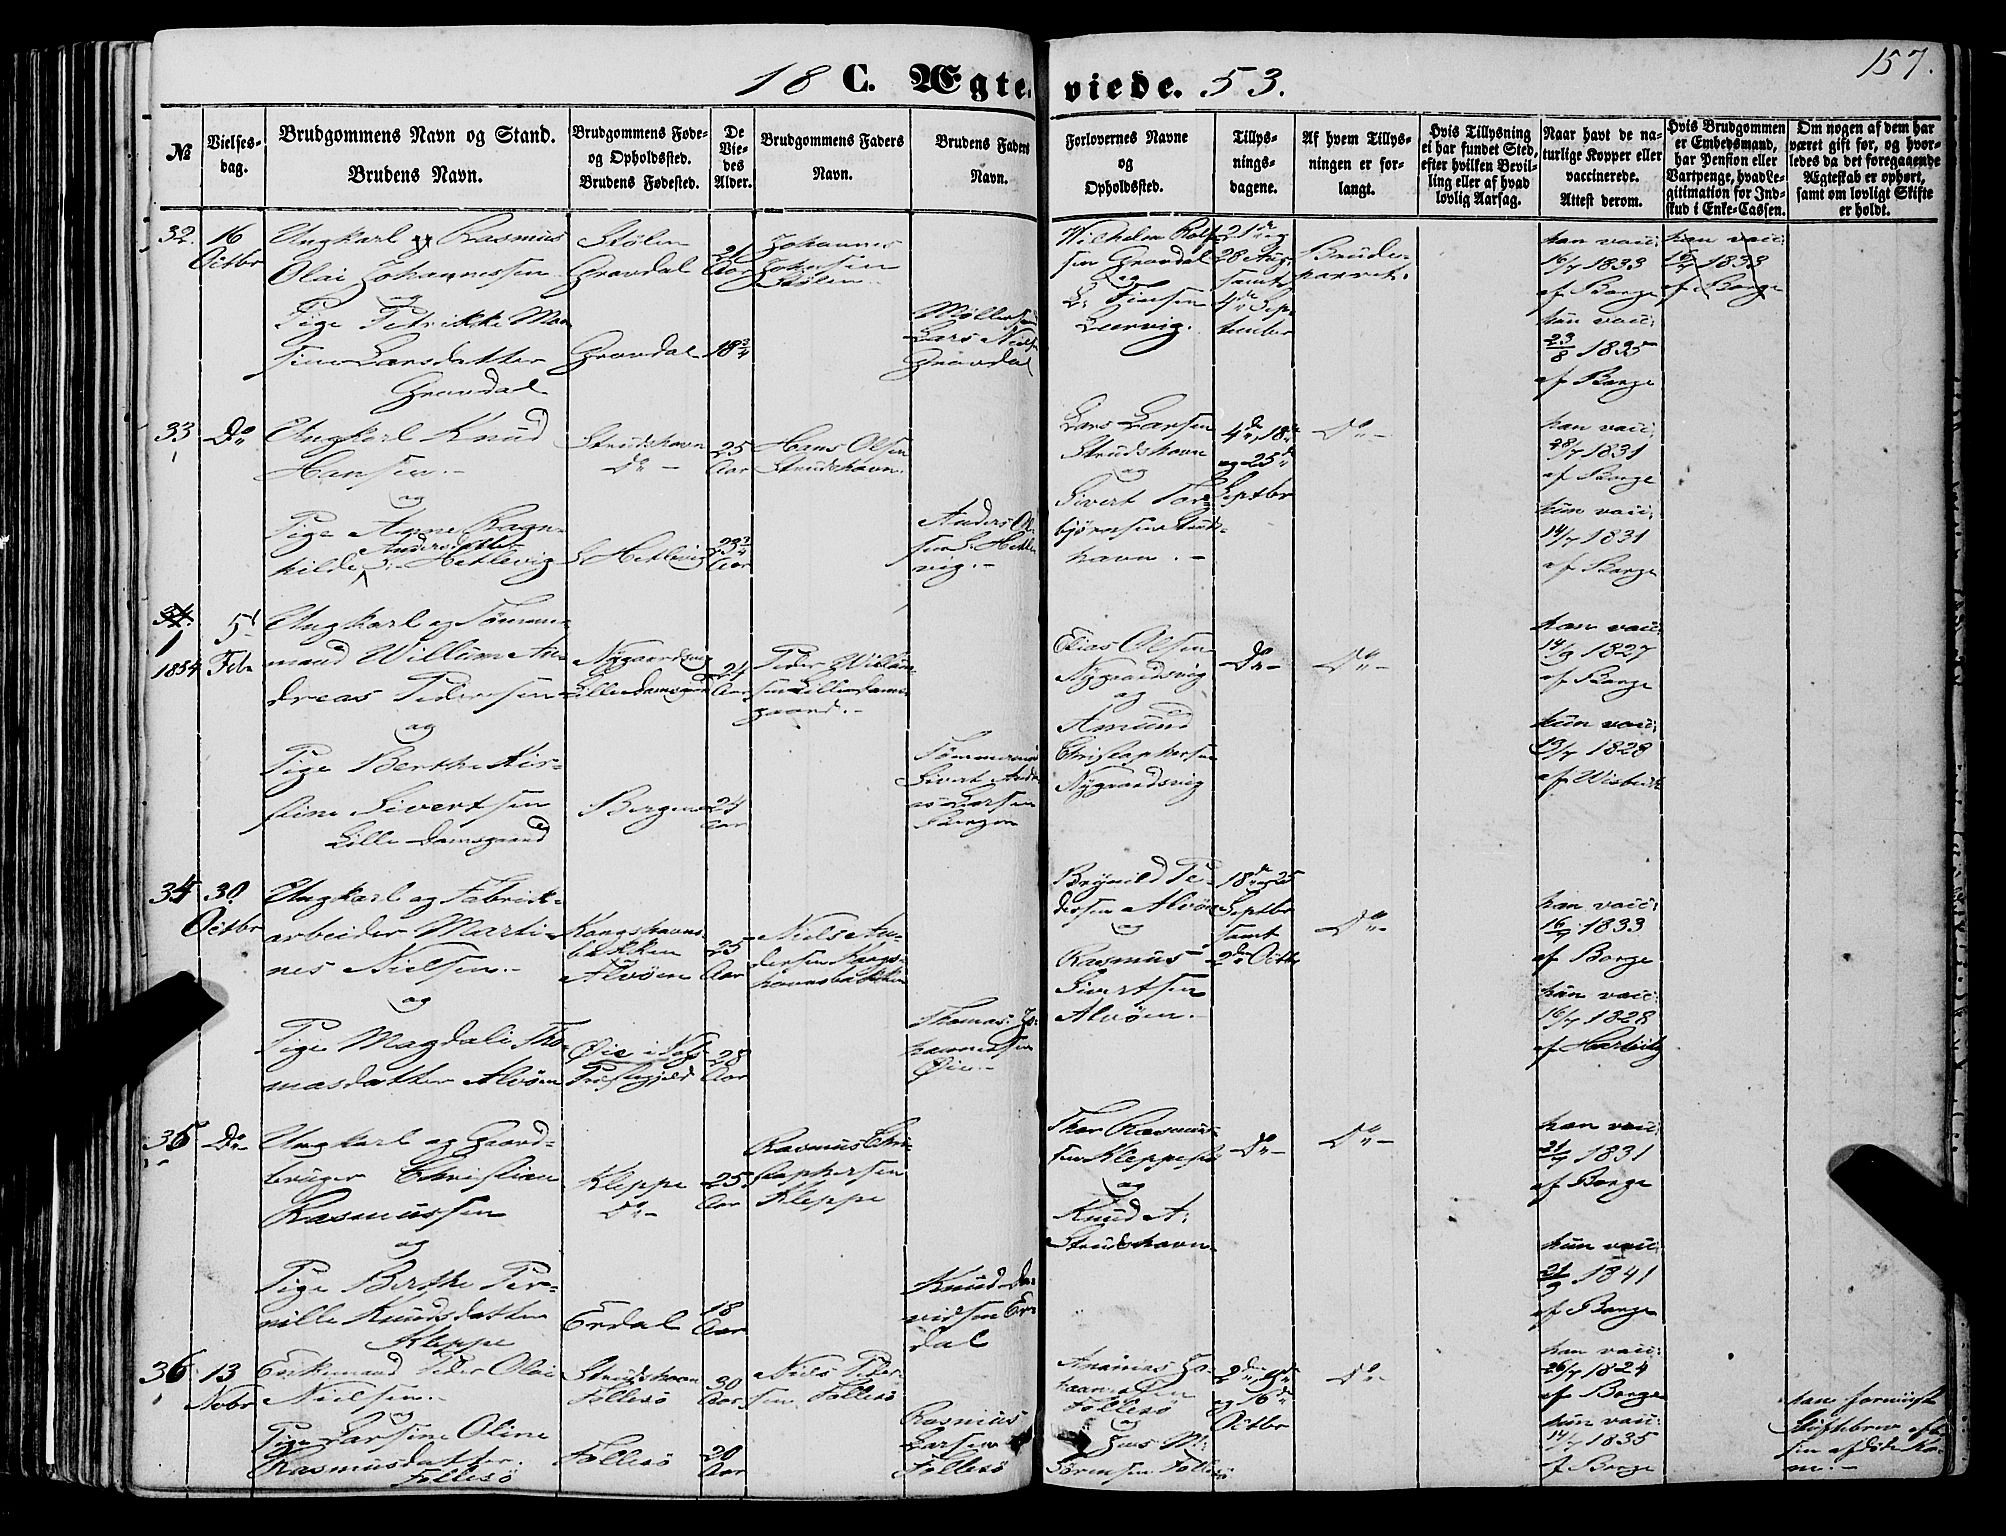 157.
18 C. Ægte viede. 53.
№
Vielses-
dag.
Brudgommens Navn og Stand.
Brudens Navn.
Brudgommens Føde-
og Opholdssted.
Brudens Fødested.
De
Vie-
des
Alder.
Brudgommens Faders
Navn.
Brudens Faders
Navn.
Forlovernes Navne
og
Opholdssted.
Tillys-
nings-
dagene.
Af hvem Tillys-
ningen er for-
langt.
Hvis Tillysning
ei har fundet Sted,
efter hvilken Bevil-
ling eller af hvad
lovlig Aarsag.
Naar havt de na-
turlige Kopper eller
vaccinerede.
Attest derom.
Hvis Brudgommen
er Embedsmand,
har Pension eller
Vartpenge, hvad Le-
gitimation for Ind-
skud i Enke-Cassen.
Om nogen af dem har
været gift før, og hvor-
ledes da det foregaaende
Ægteskab er ophørt,
samt om lovligt Skifte
er holdt.
32.
16
Octbr
Ungkarl Rasmus
Olai Johannessen
og
Pige Petrikke Mon
sine Larsdatter
Gravdal
Stølen
Gravdal
Gravdal
21
Aar
18 3/4
Johannes
Johnsen
Stølen
Møller
Lars Niels
Gravdal
Wilhelm Rolf
sen Gravdal
og
L. Jensen
Leervig.
21de og
28 Aug.
samt
4de Sep
tember
Brude-
parret.
han vacc:
16/7 1833
af Borge
hun vacc:
23/8 1835
af Borge
han vacc:
16/7 1833
af Borge
33
Do
Ungkarl Knud
Hansen.-
og
Pige Anne Ragn-
Andersdatter
hilde S. Hetlevig
Strudshavn
Do -
S Hetlevig
25
Aar
23 3/4
Aar
Hans Olsen
Strudshavn.
Anders Ol-
sen S. Hetle
vig.-
Lars Larsen
Strudshavn
og
Sivert Tor-
bjørnsen Struds-
havn.-
4de, 18de
og 25de
Septbr
Do -
han vacc:
28/7 1831
af Borge
hun vacc:
14/7 1831
af Borge
34.
1
1854
5t
Feb
Ungkarl og Tømmer-
mand Willum An-
dreas Pedersen
og
Pige Berthe Kir-
stine Sivertsen
Lille Damsgaard
Nygaardsvig
Lille Damsgaard
Bergen
24
Aar
24
Aar
Peder Willum
sen Lille Dams-
gaard.-
Tømmermand
Sivert Andr
Larsen
Bergen
Elias Olsen
Nygaardsvig
og
Amund
Christophersen
Nygaardsvig
Do -
Do -
han vacc:
14/9 1827
af Borge
hun vacc:
13/7 1828
af Wisbech
34
30
Octbr
Ungkarl og Fabrik-
arbeider Marti-
nes Nielsen.-
og
Pige Magdali Tho-
masdatter Alvøen
Kongshavns-
bakken
Alvøen
Øie i
Præstegjeld
25
Aar
28
Aar
Niels An-
dersen Kongs-
havnsbakken
Thomas Jo-
hannessen
Øie.-
Brynild Pe-
dersen Alvøen
og
Rasmus
Sivertsen
Alvøen.-
18de og 25
Septbr
samt
2de Octbr
Do -
han vacc:
16/7 1833
af Borge
hun vacc:
16/7 1828
af Hartvig
35
Do
Ungkarl og Gaard-
bruger Christian
Rasmussen
og
Pige Berthe Per-
nille Knudsdatter
Kleppe
Kleppe
Do -
Erdal
25
Aar
18
Aar
Rasmus Chri-
stophersen
Kleppe
Knud Da-
vidsen Er-
dal
Thor Rasmus-
sen Kleppestø
og
Knud A:
Strudshavn
Do -
Do -
han vacc:
21/7 1831
af Borge
hun vacc:
21/9 1841
af Borge
36
13
Novbr
Enkemand Peder Olai
Nielsen.-
og
Pige Larsine Oline
Rasmusdatter.
Follesø
Strudshavn
Follesø
Follesø
30
Aar
20
Aar
Niels Peder-
sen Follesø
Rasmus
Larsen
Follesø
Ananias Jo-
hannessen
Follesø
og
Jens M:
Sørensen Follesø
2den, 9de
og 16de
Octbr
Do -
han vacc:
26/7 1824
af Borge
hun vacc:
14/7 1835
af Borge
han foreviist
Skiftebrev efter
sin afdøde Ko-
ne.-